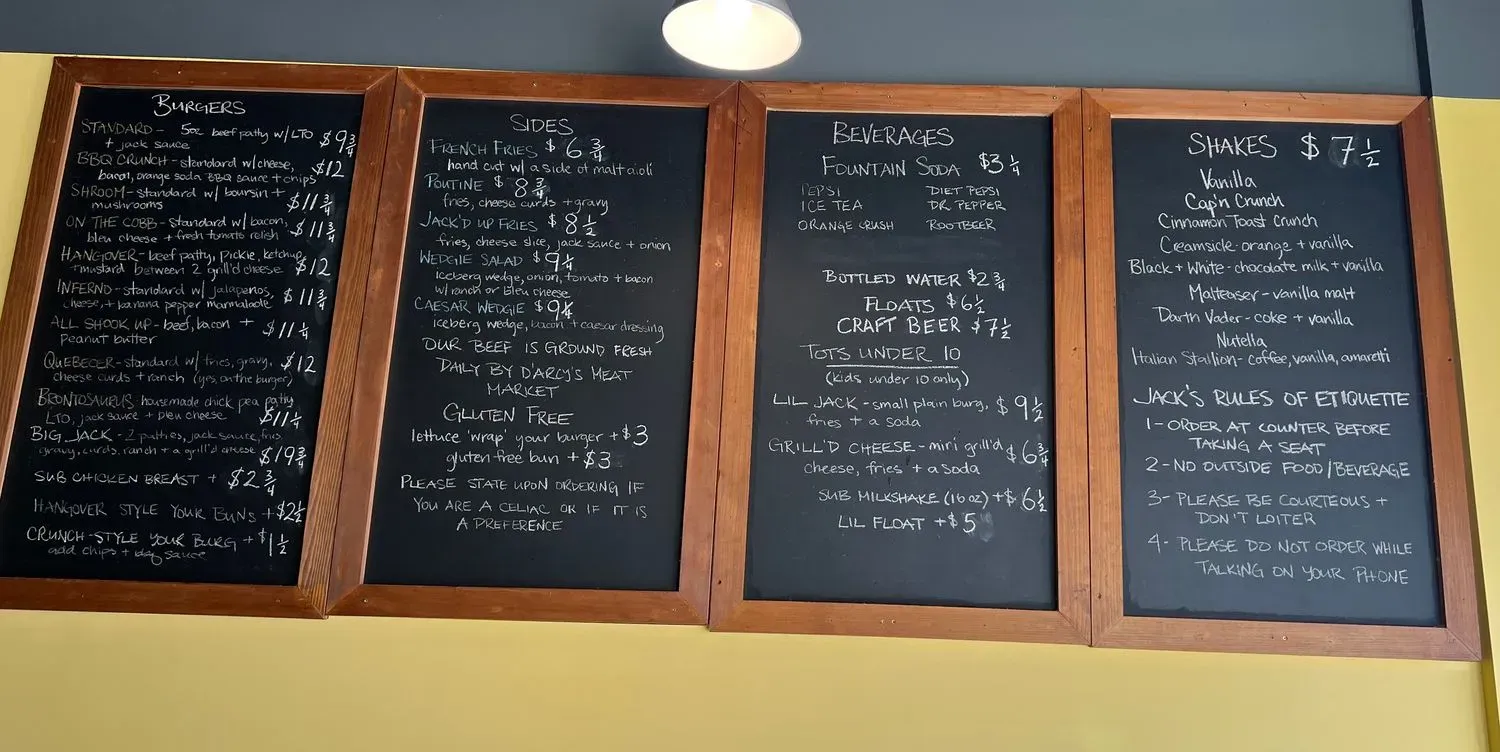 BURGERS
STANDARD - 5oz beef patty w/ LTO $9 3/4
+ jack sauce
BBQ CRUNCH - standard w/ cheese, $12
bacon, orange soda BBQ sauce + chips
SHROOM - standard w/ boursin + $11 3/4
mushrooms
ON THE COBB - standard w/ bacon, $11 3/4
bleu cheese + fresh tomato relish
HANGOVER - beef patty, pickle, ketchup $12
+ mustard between 2 grill'd cheese
INFERNO - standard w/ jalapenos, $11 3/4
cheese, + banana pepper marmalade
ALL SHOOK UP - beef, bacon + $11 1/4
peanut butter
QUEBECER - standard w/ fries, gravy, $12
cheese curds + ranch (yes, on the burger)
BRONTOSAURUS housemade chick pea patty
LTO, jack sauce + bleu cheese $11 1/4
BIG JACK - 2 patties, jack sauce, fries
gravy, curds, ranch + a grill'd cheese $19 3/4
SUB CHICKEN BREAST + $2 3/4
HANGOVER STYLE YOUR BUNS + $2 1/2
CRUNCH-STYLE YOUR BURG + $1 1/2
add chips + bbq sauce
SIDES
FRENCH FRIES $6 3/4
hand cut w/ a side of malt aioli
POUTINE $8 3/4
fries, cheese curds + gravy
JACK'D UP FRIES $8 1/2
fries, cheese slice, jack sauce + onion
WEDGIE SALAD $9 1/4
iceberg wedge, onion, tomato + bacon
w/ ranch or bleu cheese
CAESAR WEDGIE $9 1/4
iceberg wedge, bacon + caesar dressing
OUR BEEF IS GROUND FRESH
DAILY BY D'ARCY'S MEAT
MARKET
GLUTEN FREE
lettuce 'wrap' your burger + $3
gluten-free bun + $3
PLEASE STATE UPON ORDERING IF
YOU ARE A CELIAC OR IF IT IS
A PREFERENCE
BEVERAGES
FOUNTAIN SODA $3 1/4
PEPSI DIET PEPSI
ICE TEA DR. PEPPER
ORANGE CRUSH ROOTBEER
BOTTLED WATER $2 3/4
FLOATS $6 1/2
CRAFT BEER $7 1/2
TOTS UNDER 10
(kids under 10 only)
LIL JACK - small plain burg, $9 1/2
fries + a soda
GRILL'D CHEESE - mini grill'd $6 3/4
cheese, fries + a soda
SUB MILKSHAKE (16 oz) + $6 1/2
LIL FLOAT + $5
SHAKES $7 1/2
Vanilla
Cap'n Crunch
Cinnamon Toast Crunch
Creamsicle - orange + vanilla
Black + White - chocolate milk + vanilla
Malteaser - vanilla malt
Darth Vader - coke + vanilla
Nutella
Italian Stallion - coffee, vanilla, amaretti
JACK'S RULES OF ETIQUETTE
1 - ORDER AT COUNTER BEFORE
TAKING A SEAT
2 - NO OUTSIDE FOOD/BEVERAGE
3 - PLEASE BE COURTEOUS +
DON'T LOITER
4 - PLEASE DO NOT ORDER WHILE
TALKING ON YOUR PHONE